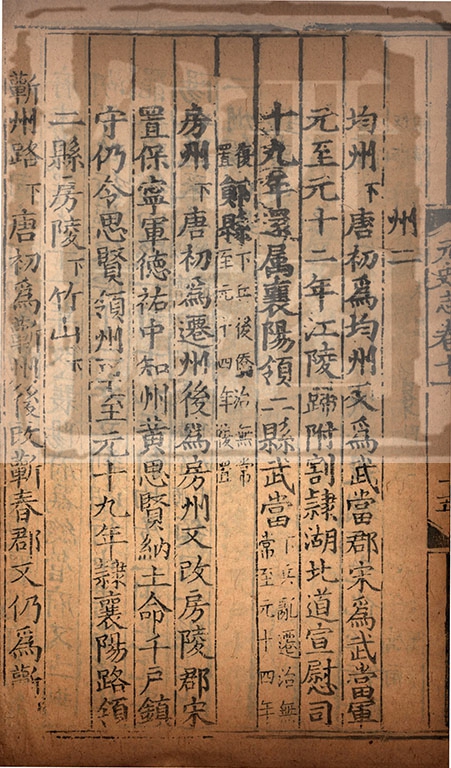 元史志卷十一
十五
州二
均州下唐初爲均州又爲武當郡宋爲武當軍
元至元十二年江陵歸附割隸湖北道宣慰司
十九年還属襄陽領二縣武當下兵亂遷治無常至元十四年
復置鄖縣下兵後僑治無常至元十四年復置
房州下唐初爲遷州後爲房州又改房陵郡宋
置保寧軍德祐中知州黃思賢納土命千戶鎮
守仍令思賢領州事至元十九年隸襄陽路領
二縣房陵下竹山下
蘄州路下唐初爲蘄州後改蘄春郡又仍爲蘄